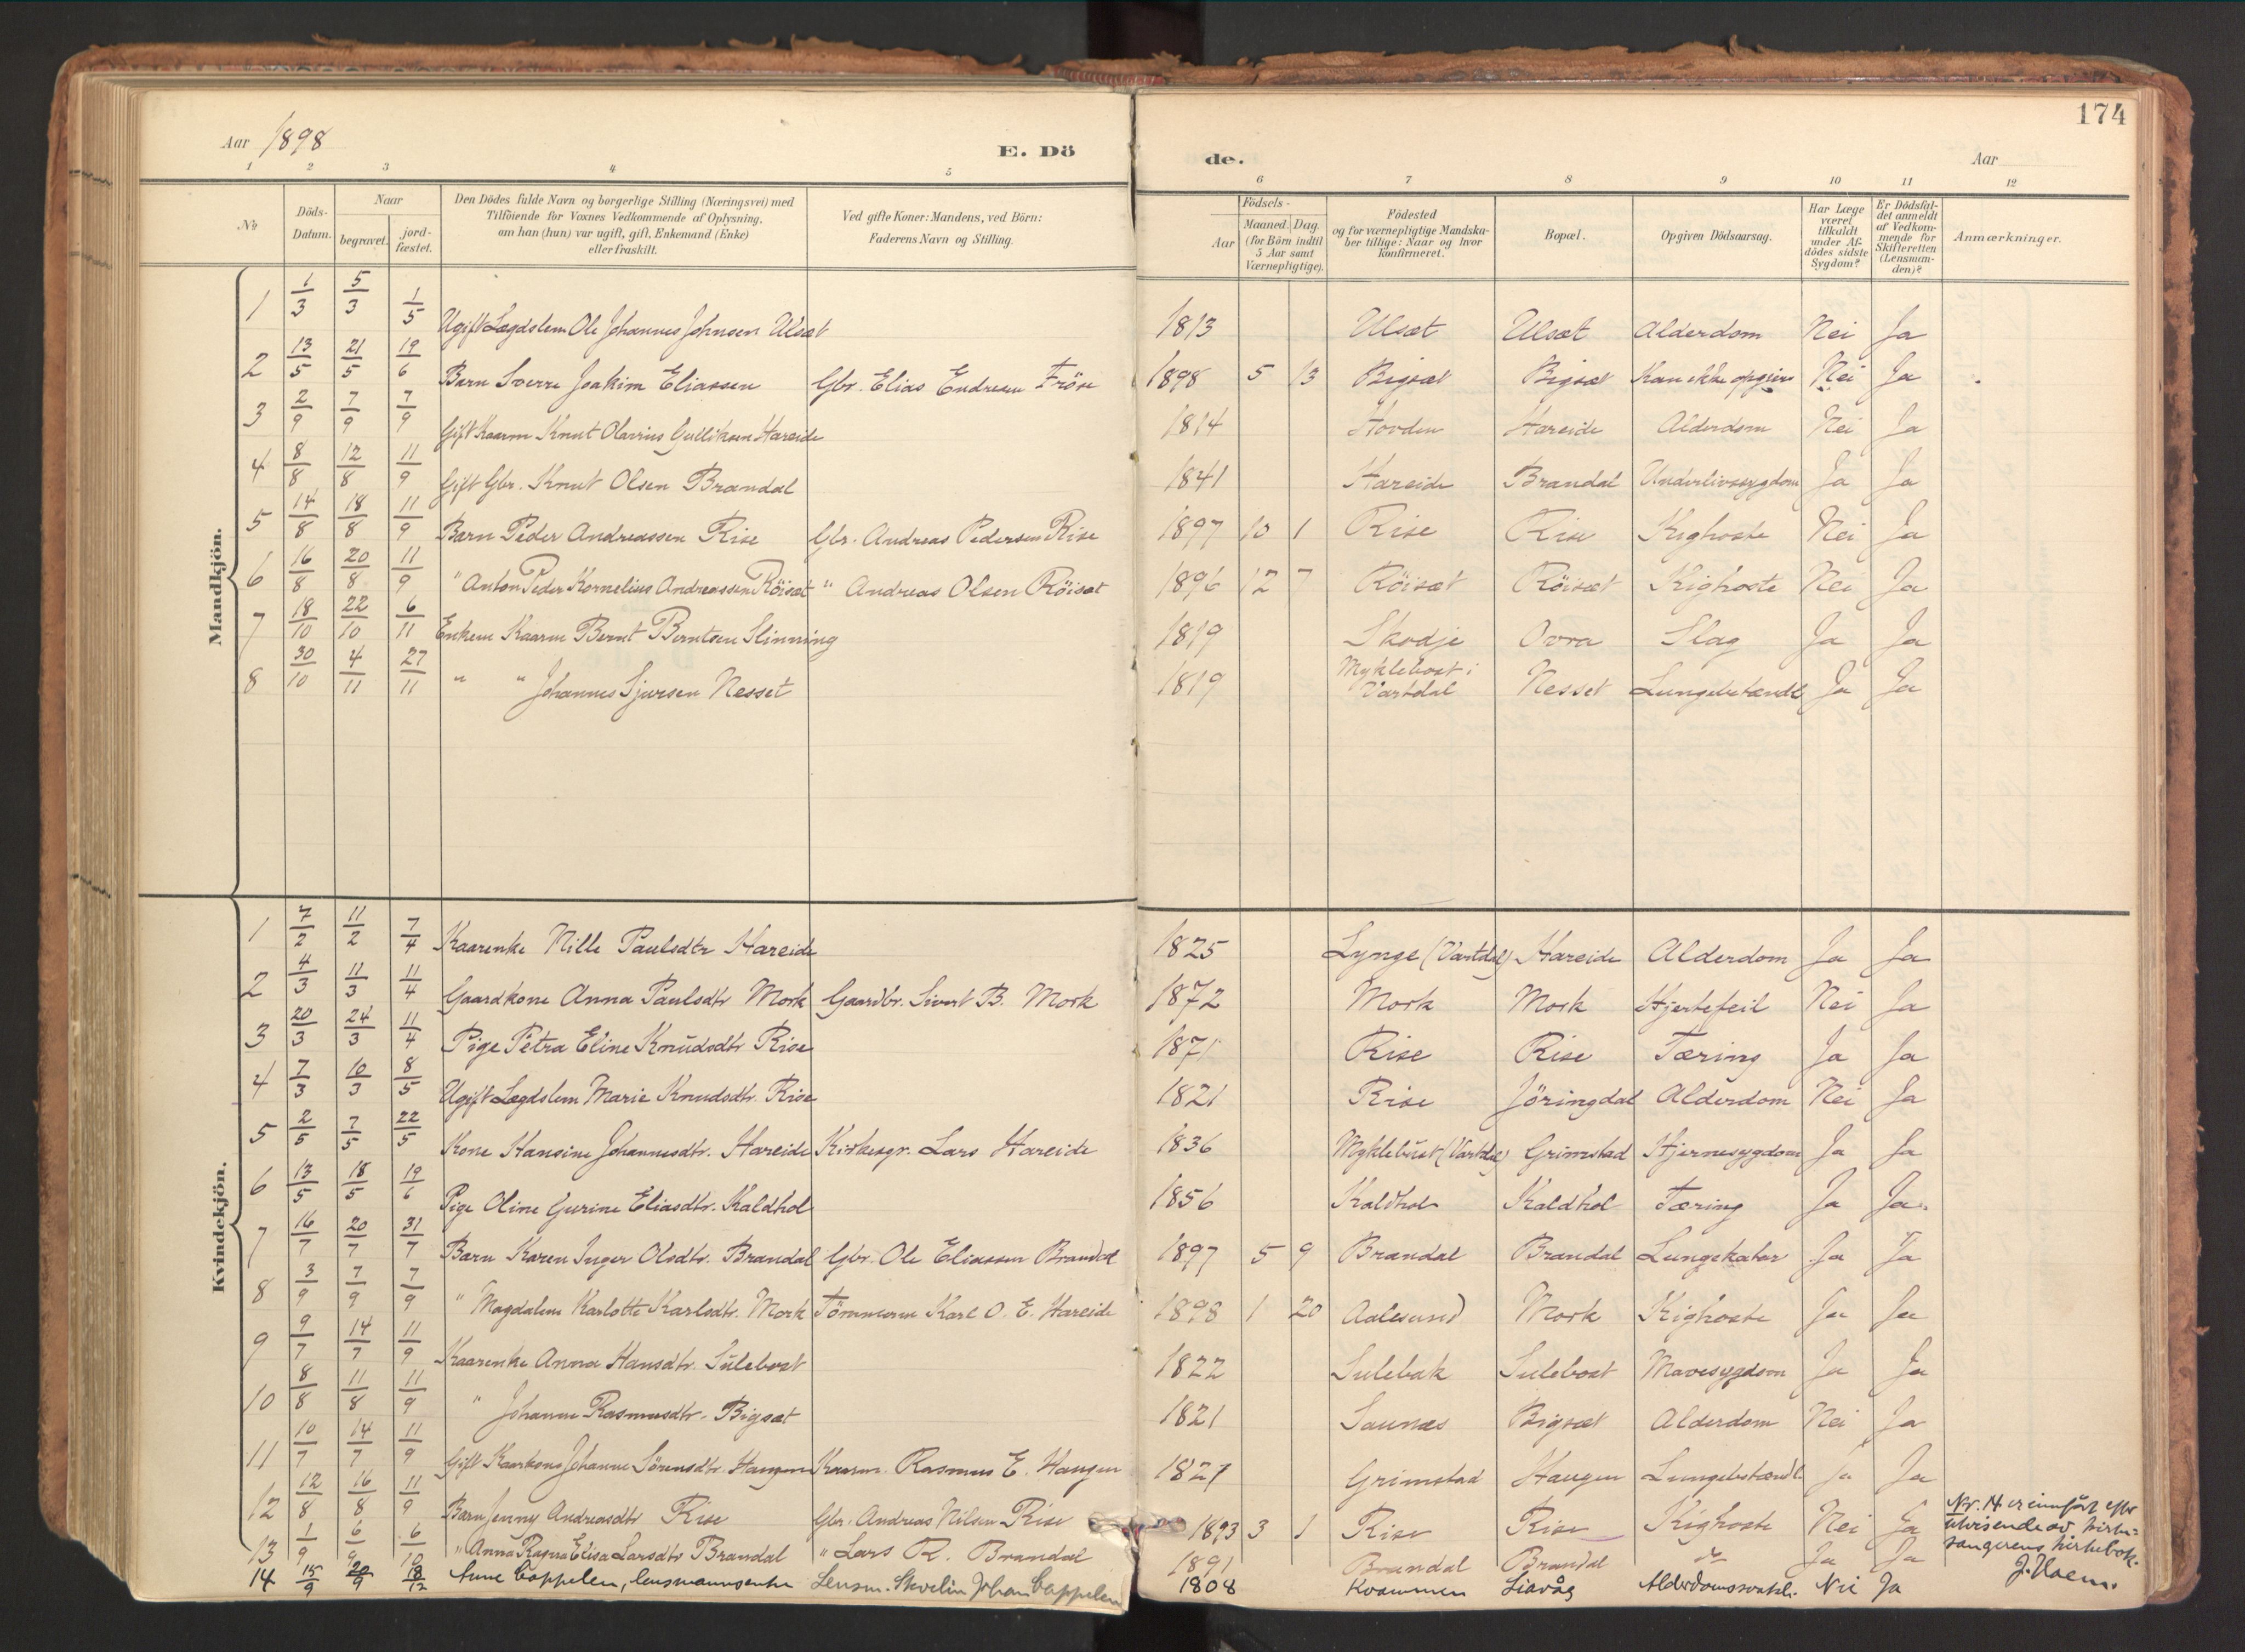 174
Aar 1898
E. Dö
de.
Aar
1 2 3 4 5 6 7 8 9 10 11 12
No
Döds-Datum.
Naar
begravet.
jord-fæstet.
Den Dödes fulde Navn og borgerlige Stilling (Næringsvei) med
Tilföiende for Voxnes Vedkommende af Oplysning,
om han (hun) var ugift, gift, Enkemand (Enke)
eller fraskilt.
Ved gifte Koner: Mandens, ved Börn:
Faderens Navn og Stilling.
Födsels-
Aar
Maaned.
Dag.
(for Börn indtil
5 Aar samt
Værnepligtige).
Födested
og for værnepligtige Mandska-
ber tillige: Naar og hvor
konfirmeret.
Bopæl.
Opgiven Dödsaarsag.
Har Læge
været
tilkaldt
under Af-
dödes sidste
Sygdom?
Er Dödsfal-
det anmeldt
af Vedkom-
mende for
Skifteretten
(Lensman-
den)?
Anmærkninger.
Mandkjön.
1 1/3 5/3 1/5 Ugift Lægdslem Ole Johannes Johnsen Ulsæt 1813 Ulsæt Ulsæt Alderdom Nei Ja
2 13/5 21/5 19/6 Barn Sverre Joakim Eliassen Gbr. Elias Endresen Fröse 1898 5 13 Bigsæt Bigsæt Kan ikke opgives Nei Ja
3 2/9 7/9 7/9 Gift Kaarm Knut Olavius Gulliksen Hareide 1814 Hovden Hareide Alderdom Nei Ja
4 8/8 12/8 11/9 Gift Gbr. Knut Olsen Brandal 1841 Hareide Brandal Underlivssygdom Ja Ja
5 14/8 18/8 11/9 Barn Peder Andreassen Rise Gbr. Andreas Pedersen Rise 1897 10 1 Rise Rise Kighoste Nei Ja
6 16/8 20/8 11/9 " Anton Peder Kornelius Andreassen Röisæt " Andreas Olsen Röisæt 1896 12 7 Röisæt Röisæt Kighoste Nei Ja
7 18/10 22/10 6/11 Enkem Kaarm Bernt Berntsen Slinning 1819 Skodje Ovra Slag Ja Ja
8 30/10 4/11 27/11 " " Johannes Sjursen Nesset 1819 Myklebost i Vartdal Nesset Lungebetændl Ja Ja
Kvindekjön.
1 7/2 11/2 7/4 Kaarenke Nille Paulsdtr Hareide 1825 Lynge (Vartdal) Hareide Alderdom Ja Ja
2 4/3 11/3 11/4 Gaardkone Anna Paulsdtr Mork Gaardbr. Sivert B. Mork 1872 Mork Mork Hjertefeil Nei Ja
3 20/3 24/3 11/4 Pige Petra Eline Knudsdtr Rise 1871 Rise Rise Tæring Ja Ja
4 7/3 10/3 8/5 Ugift Lægdslem Marie Knudsdtr. Rise 1821 Rise Jöringdal Alderdom Nei Ja
5 2/5 7/5 22/5 Kone Hansine Johannesdtr. Hareide Kirkesgr. Lars Hareide 1836 Myklebust (Vartdal) Grimstad Hjernesygdom Ja Ja
6 13/5 18/5 19/6 Pige Oline Gurine Eliasdtr. Kaldhol 1856 Kaldhol Kaldhol Tæring Ja Ja
7 16/7 20/7 31/7 Barn Karen Inger Olsdtr. Brandal Gbr. Ole Eliassen Brandal 1897 5 9 Brandal Brandal Lungekatar Ja Ja
8 3/9 7/9 7/9 " Magdalene Karlotte Karlsdtr. Mork Tömmerm Karl O. E. Hareide 1898 1 20 Aalesund Mork Kighoste Ja Ja
9 9/7 14/7 11/9 Kaarenke Anna Hansdtr. Sulebost 1822 Sulebak Sulebost Mavesygdom Ja Ja
10 8/8 11/8 11/9 " Johanne Rasmusdtr. Bigsæt 1821 Saunæs Bigsæt Alderdom Nei Ja
11 10/7 14/7 11/9 Gift Kaarkone Johanne Sörensdtr. Haugen Kaarm. Rasmus E. Haugen 1827 Grimstad Haugen Lungebetændl. Ja Ja
12 12/8 16/8 11/9 Barn Jenny Andreasdtr Rise Gbr. Andreas Nilsen Rise 1893 3 1 Rise Rise Kighoste Nei Ja
13 1/9 6/9 6/10 " Anna Ragna Elisa Larsdtr Brandal " Lars R. Brandal 1891 Brandal Brandal do Ja Ja
14 15/9 20/9 18/12 Anne Cappelen, lensmannsenke Lensm. Skvelin Johan Cappelen 1808 Kvammen Liavåg Nei Ja
Nr. 14 er innfört efter
utvisende av kirke-
sangerens kirkebok.